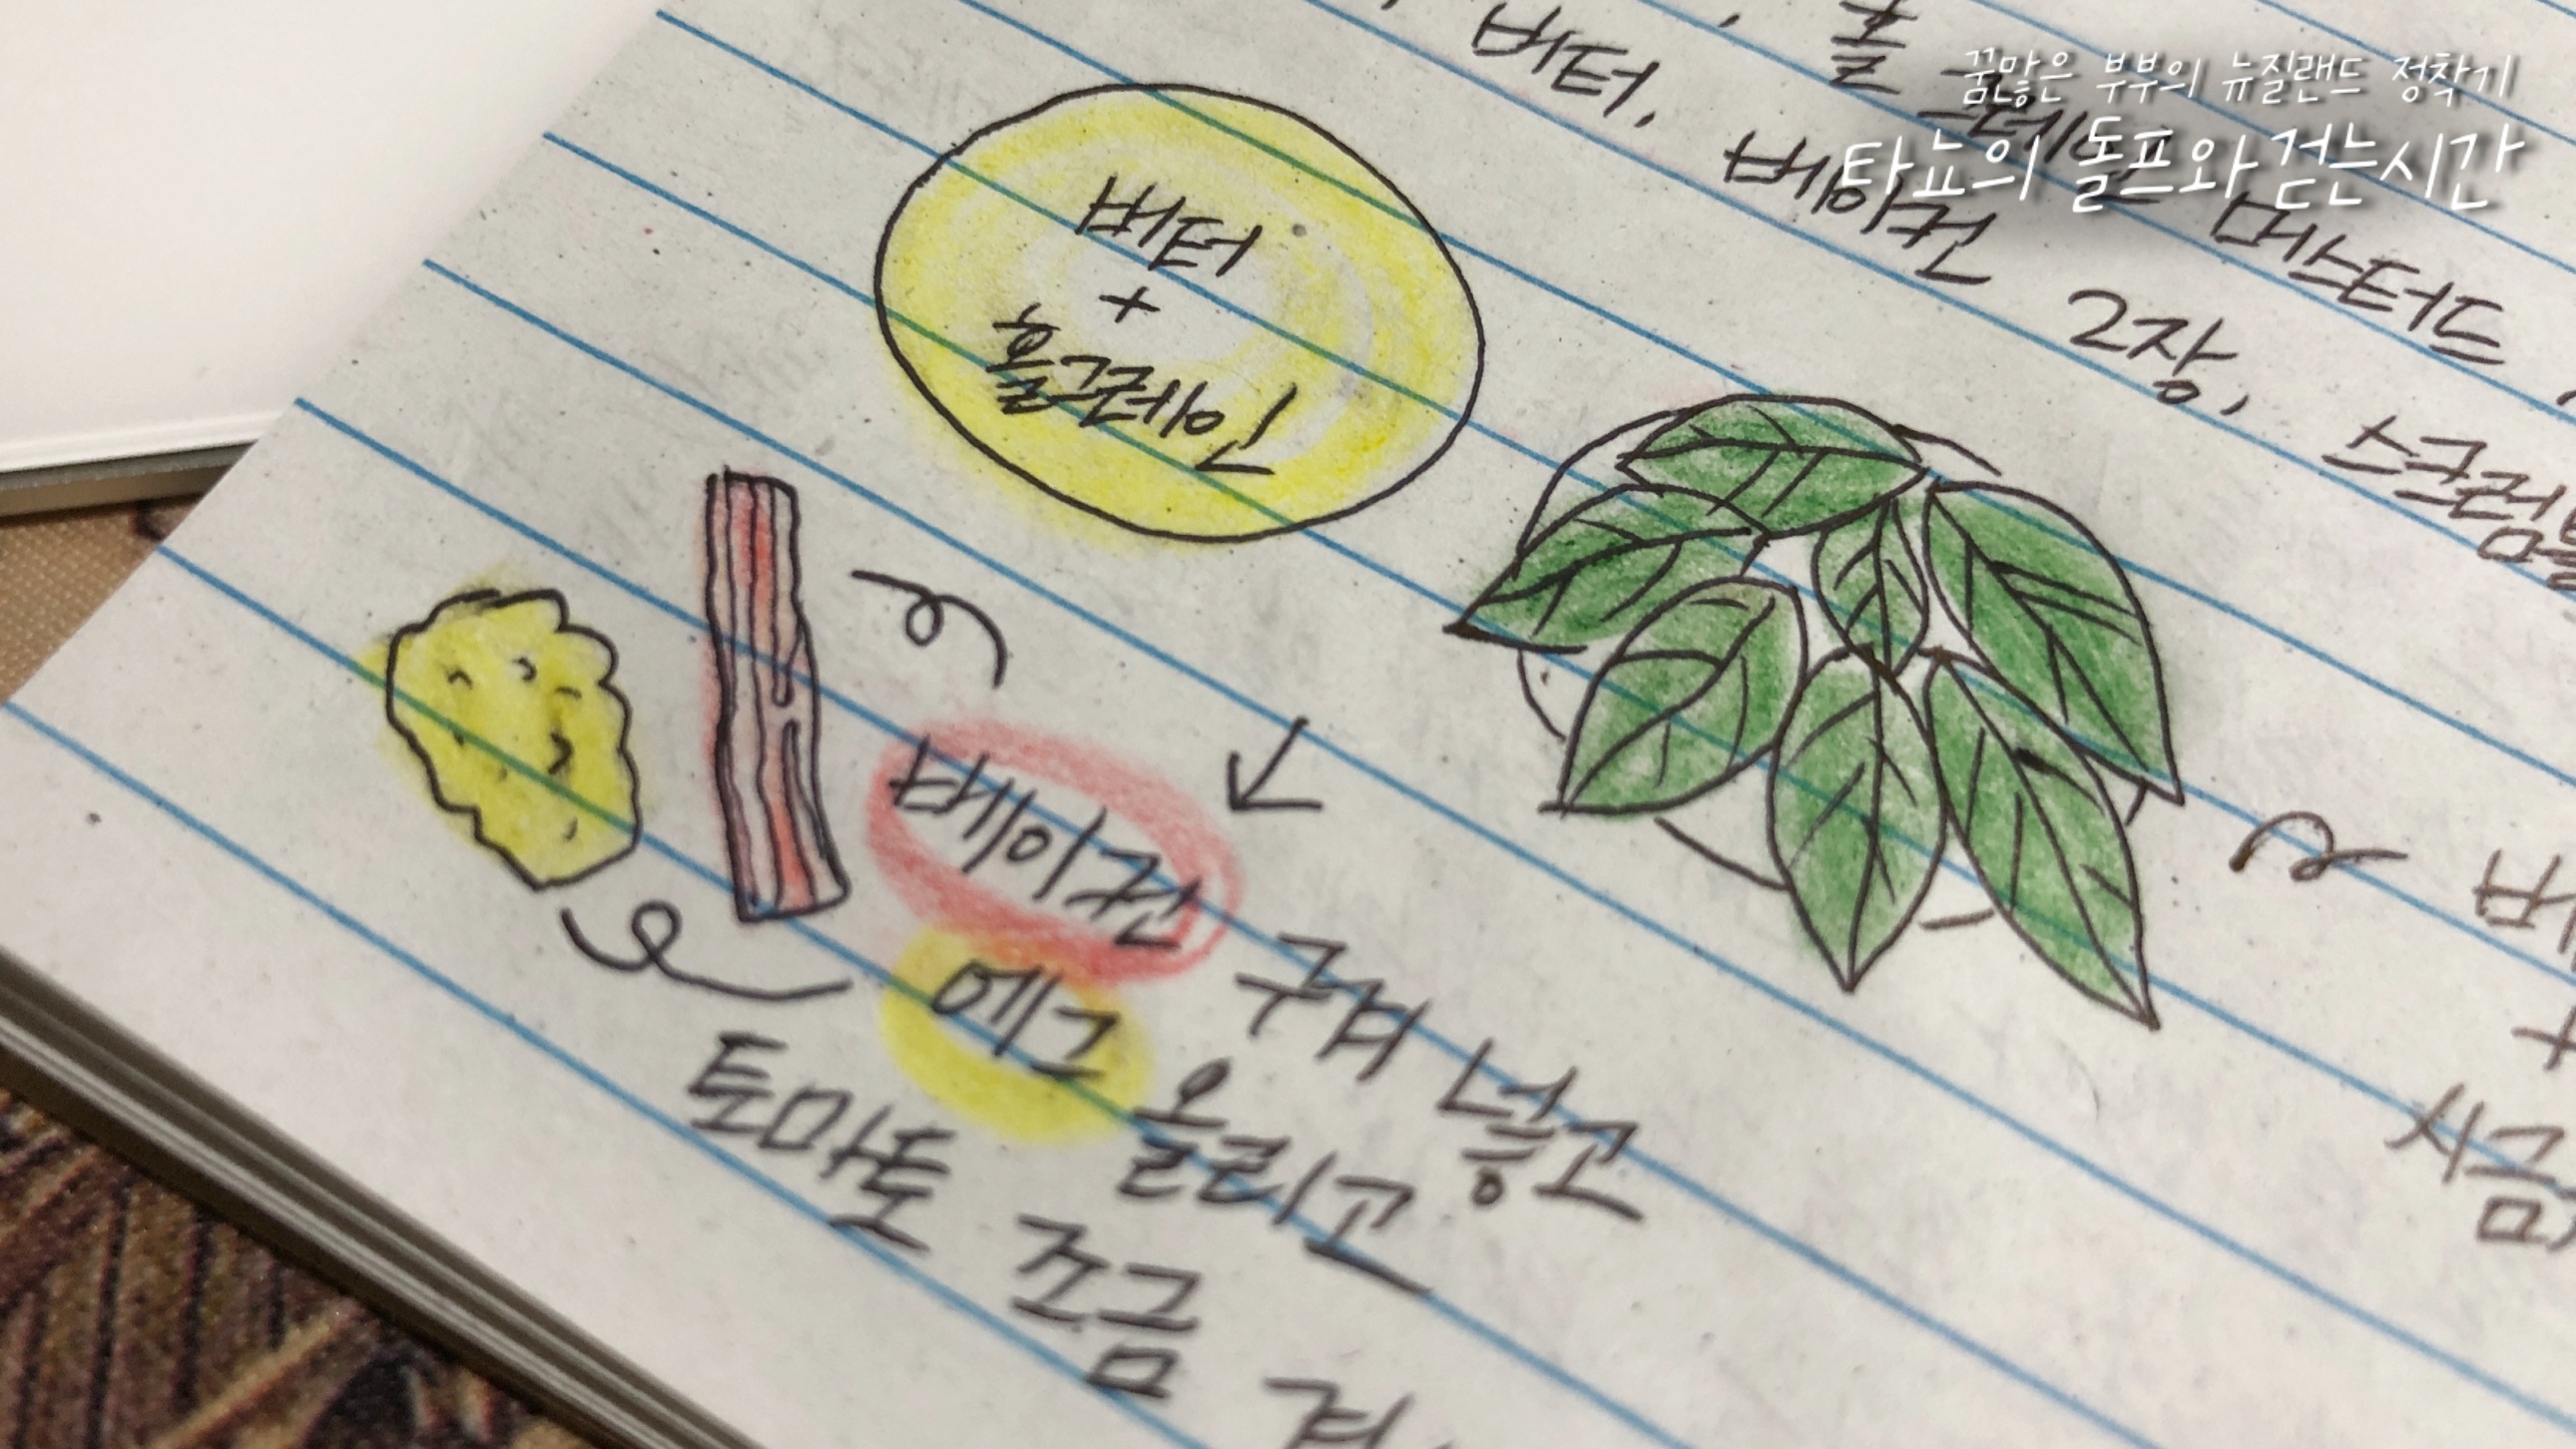 꿈많은 부부의 뉴질랜드 정착기
타뇨의 돌프와 걷는시간
홀그레인 머스터드,
버터, 베이컨 2장, 스크럼블
버터
+
홀그레인
베이컨 구워 넣고
에그 올리고
토마토 조금